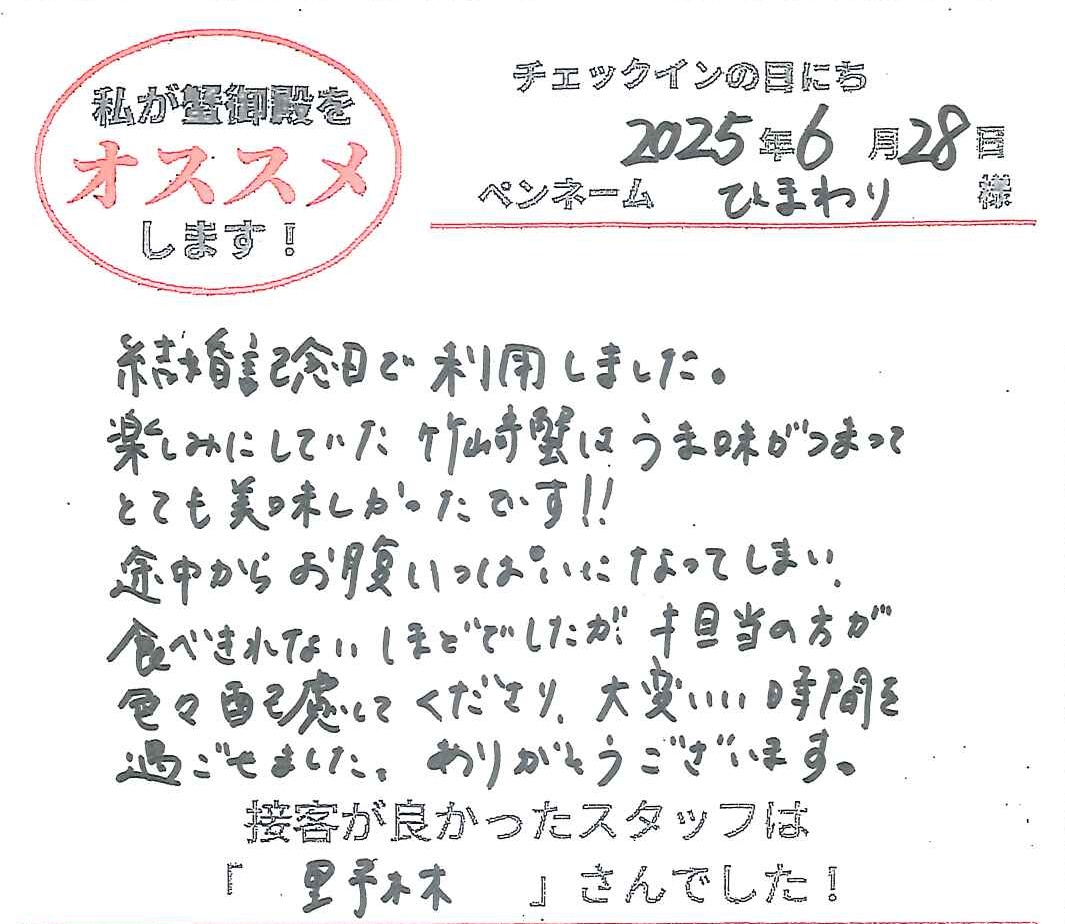 私が蟹御殿を
オススメ
します!
チェックインの日にち
2025年6月28日
ペンネーム ひまわり 様
結婚記念日で利用しました。
楽しみにしていた竹崎蟹はうま味がつまって
とても美味しかったです!!
途中からお腹いっぱいになってしまい、
食べきれないほどでしたが、担当の方が
色々配慮してくださり、大変いい時間を
過ごせました。ありがとうございます。
接客が良かったスタッフは
「 野林 」さんでした!